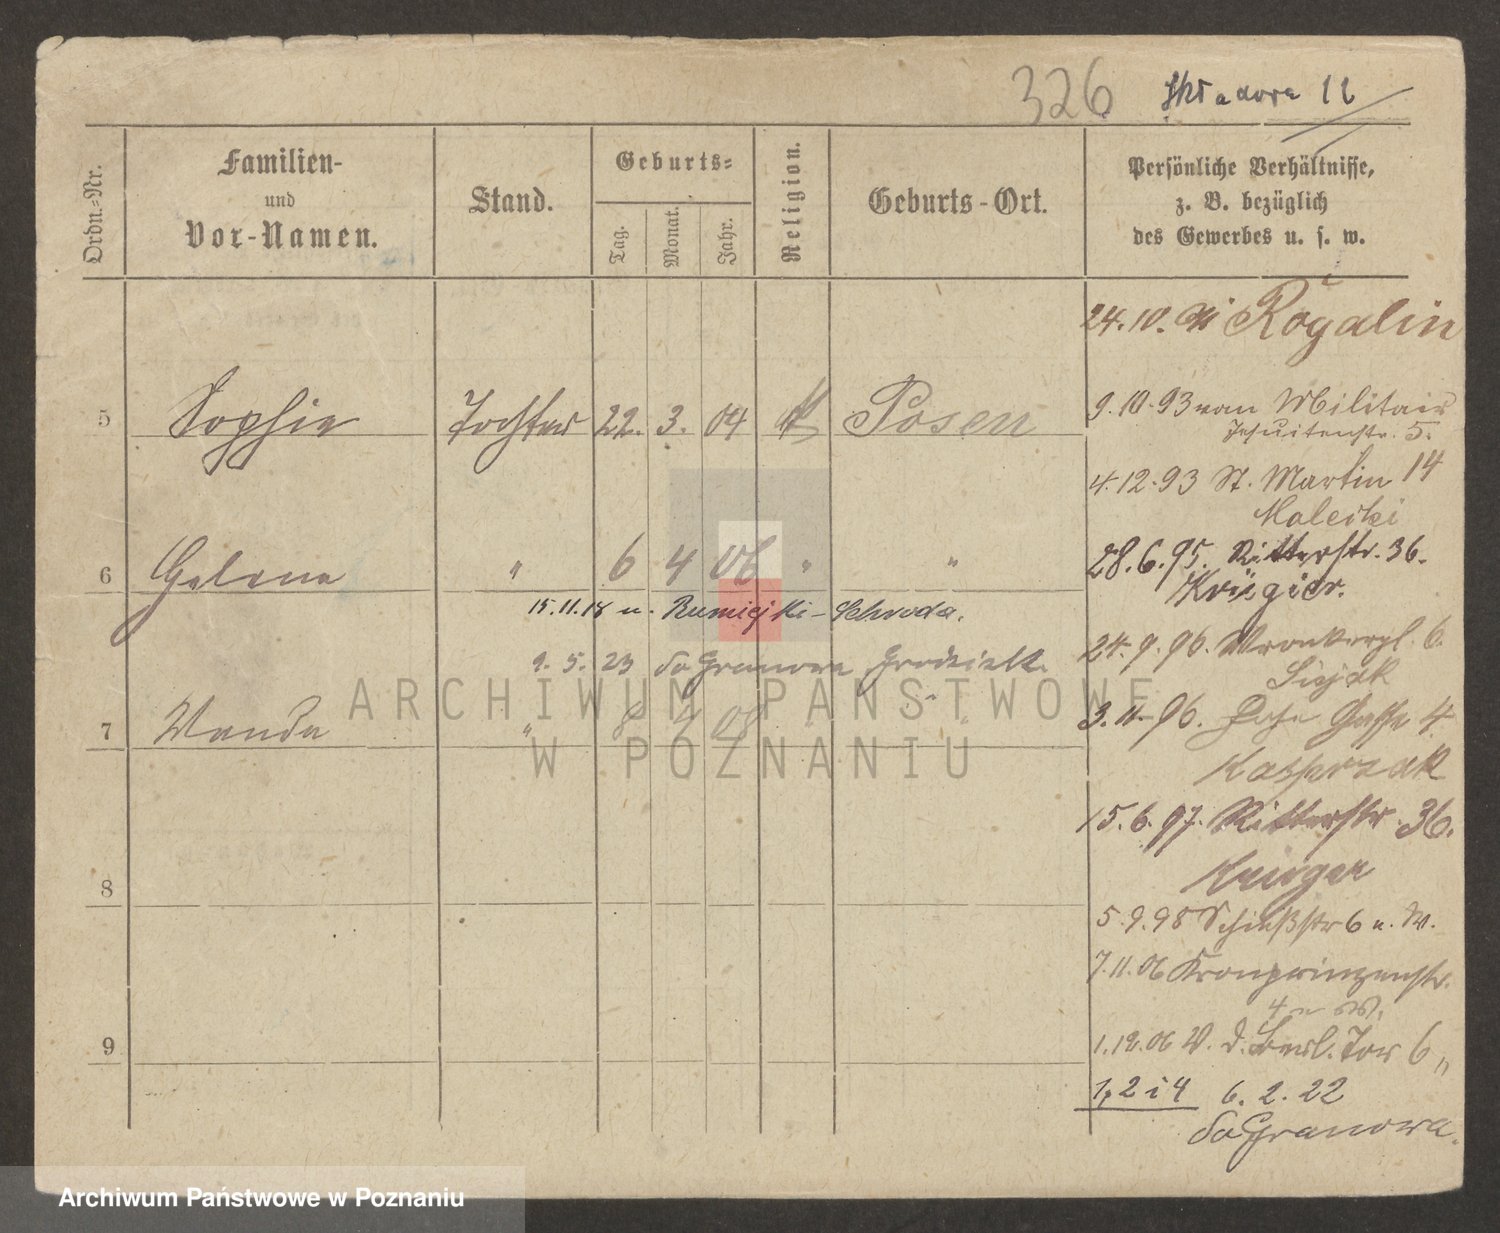 326
11
Ordn.-Nr.
Familien-
und
Vor-Namen.
Stand.
Geburts-
Tag.
Monat.
Jahr.
Religion.
Geburts-Ort.
Persönliche Verhältnisse,
z. B. bezüglich
des Gewerbes u. s. w.
24.10. Rogalin
5 Sophie Tochter 22. 3. 04 Posen
9.10.93 vom Militair
Jesuitenstr. 5.
4.12.93 St. Martin 14
Malecki
6 Helene " 6 4 06 " "
28.6.95. Ritterstr. 36.
Krüger.
15.11.18 n. Schroda.
24.9.96. Wronkerpl. 6.
9. 5. 23 do Granowa
3.11.96. Hohe Gasse 4.
Kasprzak
7 Wanda " 8 08
15.6.97. Ritterstr. 36.
Krüger
8
5.9.98 Schießstr 6 u. W.
7.11.06 Kronprinzenstr.
4 u W.
9
1.12.06 V. d. Berl. Tor 6
1, 2 i 4 6. 2. 22
do Granowa.
ARCHIWUM PAŃSTWOWE
W POZNANIU
Archiwum Państwowe w Poznaniu